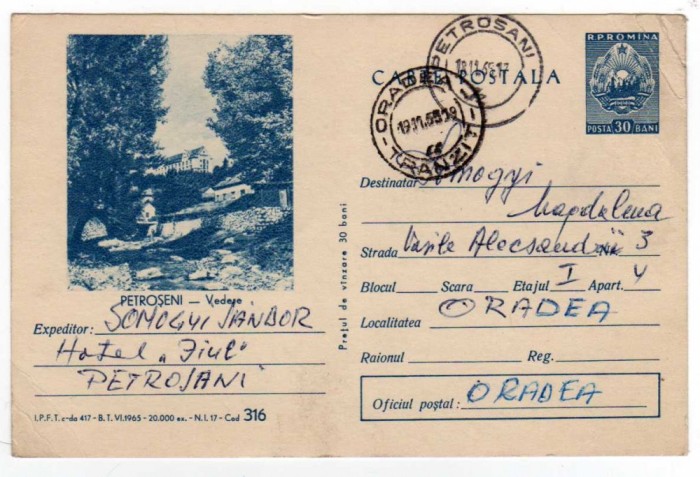 PETROȘENI — Vedere
Expeditor: SOMOGYI SÁNDOR
Hotel „Jiul”
PETROȘANI
I.P.F.T. c-da 417 - B.T. VI.1965 - 20.000 ex. - N.I. 17 - Cod 316
Prețul de vînzare 30 bani
CARTE POSTALA
R.P.ROMINA
POSTA 30 BANI
PETROSANI
ORADEA
19.11.65
TRANZIT
Destinatar Somogyi
Magdalena
Strada Vasile Alecsandri Nr. 3
Blocul Scara Etajul I Apart. 4
Localitatea ORADEA
Raionul Reg.
Oficiul poștal: ORADEA